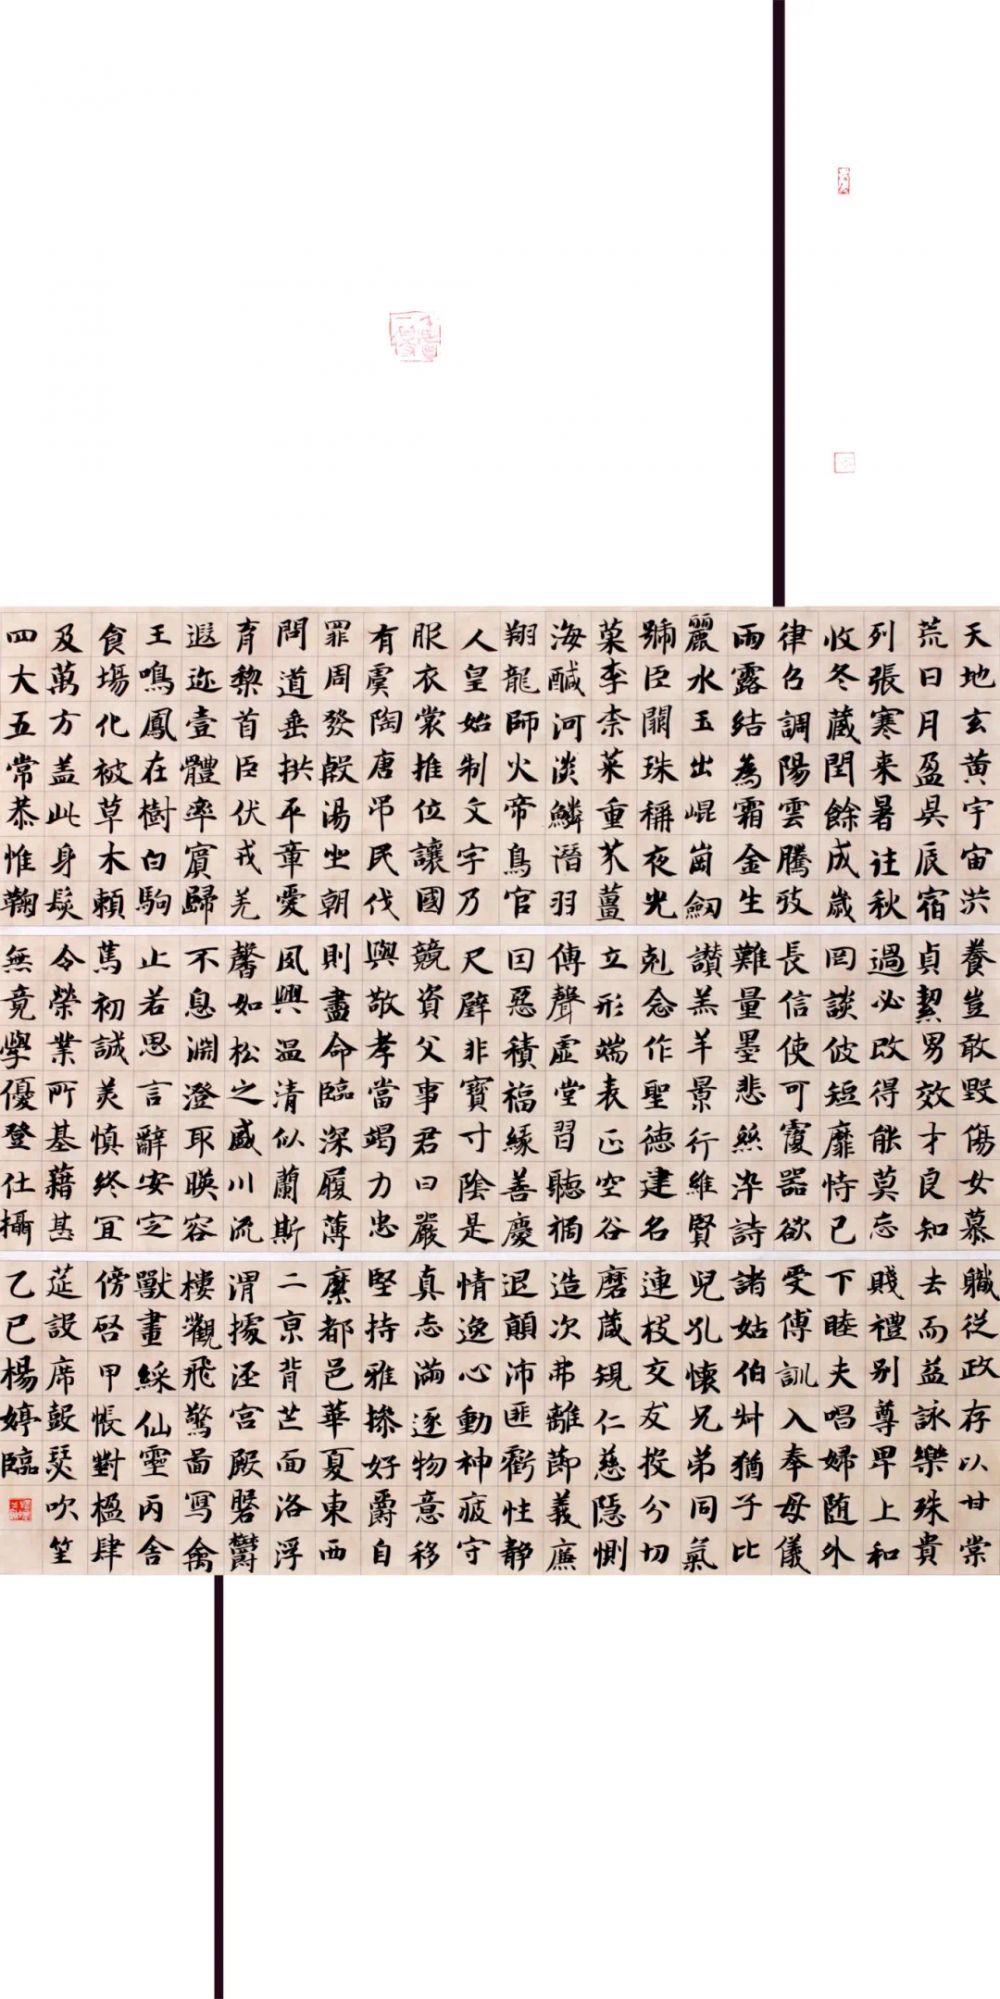 天地玄黄宇宙洪
荒日月盈昃辰宿
列張寒来暑往秋
收冬蔵閏餘成歲
律召調陽雲騰致
雨露結為霜金生
麗水玉出崐崗劒
號臣闕珠稱夜光
菓李柰菜重芥薑
海醎河淡鱗潛羽
翔龍師火帝鳥官
人皇始制文字乃
服衣裳推位讓國
有虞陶唐吊民伐
罪周發殷湯坐朝
問道垂拱平章愛
育黎首臣伏戎羌
遐迩壹體率賓歸
王鳴鳳在樹白駒
食場化被草木頼
及萬方盖此身髮
四大五常恭惟鞠
養豈敢毀傷女慕
貞絜男效才良知
過必改得能莫忘
罔談彼短靡恃己
長信使可覆器欲
難量墨悲絲染詩
讚羔羊景行維賢
剋念作聖德建名
立形端表正空谷
傳聲虛堂習聽禍
因惡積福緣善慶
尺璧非寶寸陰是
競資父事君曰嚴
與敬孝當竭力忠
則盡命臨深履薄
夙興温清似蘭斯
馨如松之盛川流
不息淵澄取暎容
止若思言辭安定
篤初誠美慎終宜
令榮業所基藉甚
無竟學優登仕攝
職從政存以甘棠
去而益詠樂殊貴
賤禮别尊卑上和
下睦夫唱婦随外
受傅訓入奉母儀
諸姑伯叔猶子比
兒孔懷兄弟同氣
連枝交友投分切
磨葴規仁慈隱惻
造次弗離節義廉
退顛沛匪虧性静
情逸心動神疲守
真志滿逐物意移
堅持雅操好爵自
縻都邑華夏東西
二京背芒面洛浮
渭據涇宫殿磐鬱
樓觀飛驚啚寫禽
獸畫綵仙靈丙舍
傍啓甲帳對楹肆
筵設席鼓瑟吹笙
乙巳楊婷臨